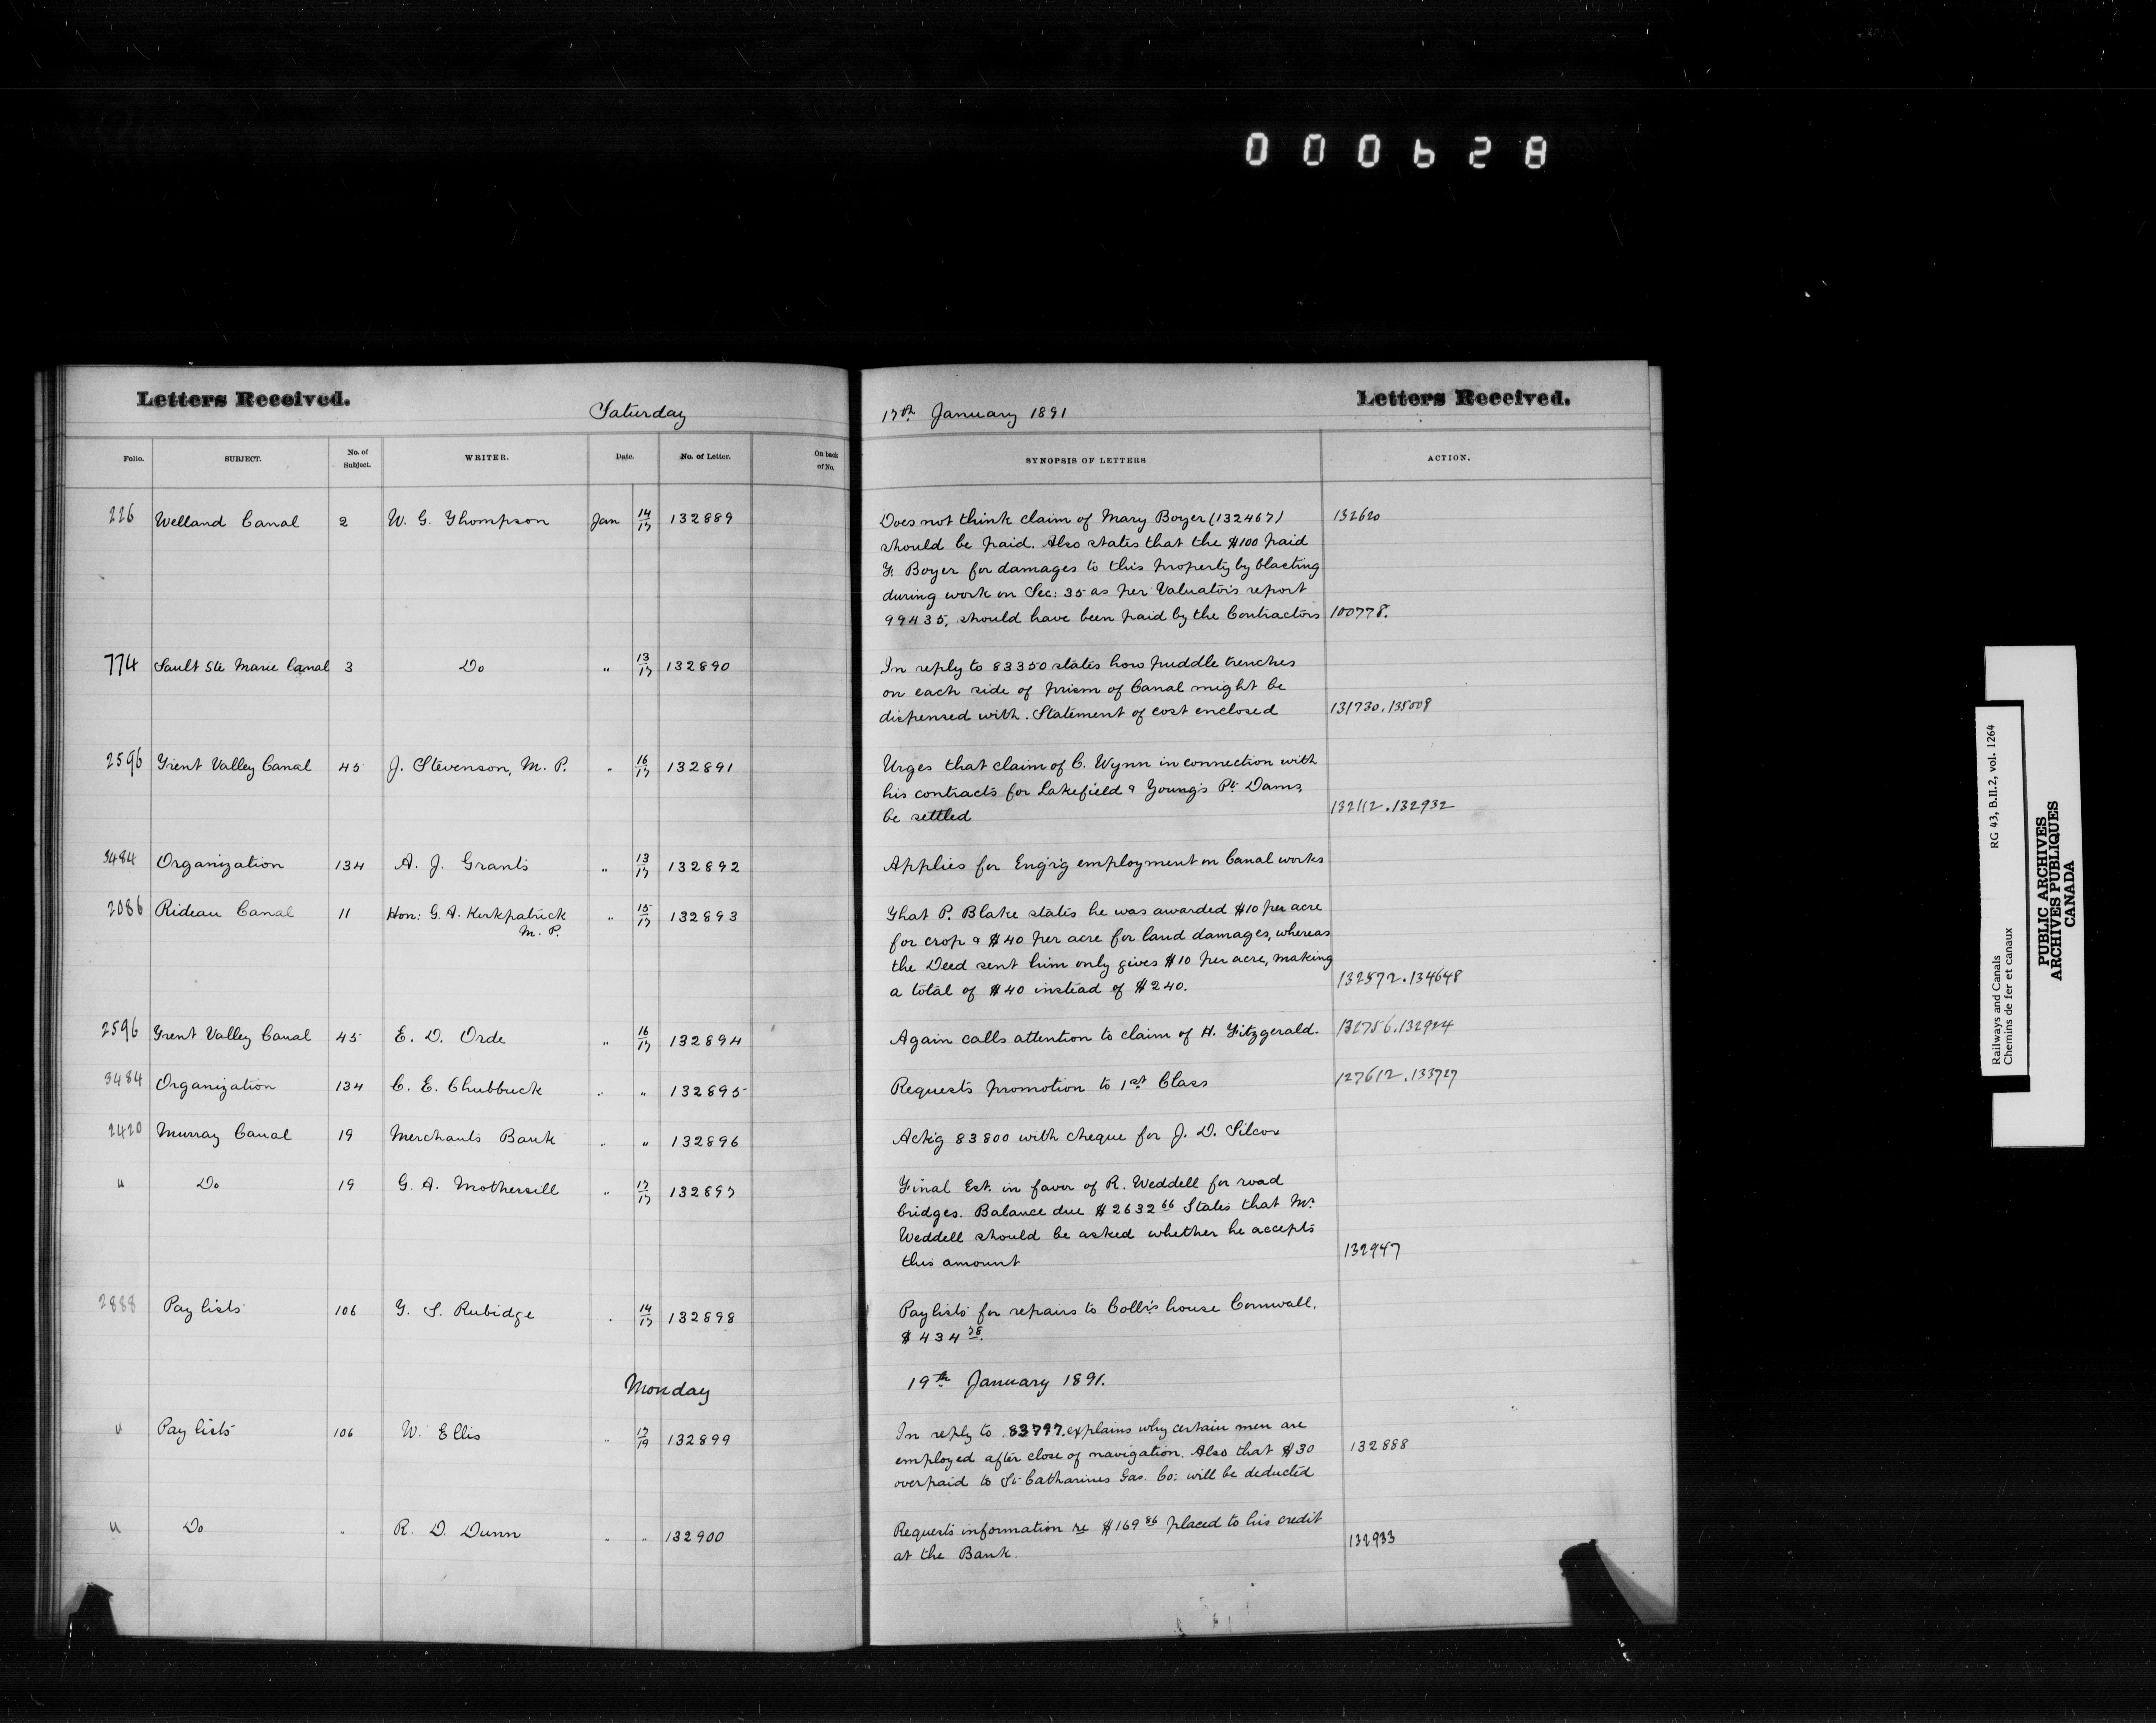 000628
Letters Received.
Saturday
17th January 1891
Letters Received.
Folio. SUBJECT. No. of Subject. WRITER. Date. No. of Letter. On back of No. SYNOPSIS OF LETTERS ACTION.
226 Welland Canal 2 W. G. Thompson Jan 14/17 132889
Does not think claim of Mary Boyer (132467) 132620
should be paid. Also states that the $100 paid
F. Boyer for damages to this property by blasting
during work on Sec: 35 as per Valuator's report
99435, should have been paid by the Contractors 100778.
774 Sault Ste Marie Canal 3 Do " 13/17 132890
In reply to 83350 states how puddle trenches
on each side of prism of Canal might be
dispensed with. Statement of cost enclosed 131730.135009
2596 Trent Valley Canal 45 J. Stevenson, M. P. " 16/17 132891
Urges that claim of C. Wynn in connection with
his contracts for Lakefield & Young's Pt. Dams,
be settled 132112.132932
3484 Organization 134 A. J. Grants " 13/17 132892
Applies for Eng'r'g employment on Canal works
2086 Rideau Canal 11 Hon: G. A. Kirkpatrick " 15/17 132893
M. P.
That P. Blake states he was awarded $10 per acre
for crop & $40 per acre for land damages, whereas
the Deed sent him only gives $10 per acre, making
a total of $40 instead of $240. 132572.134648
2596 Trent Valley Canal 45 E. D. Orde " 16/17 132894
Again calls attention to claim of H. Fitzgerald. 132756.132924
3484 Organization 134 C. E. Chubbuck " " 132895
Requests promotion to 1st Class 127612.133727
2420 Murray Canal 19 Merchants Bank " " 132896
Ackig 83800 with cheque for J. D. Silcox
" Do 19 G. A. Mothersill " 17/17 132897
Final Est. in favor of R. Weddell for road
bridges. Balance due $2632 66 States that Mr.
Weddell should be asked whether he accepts
this amount 132947
2888 Pay lists 106 T. S. Rubidge " 14/17 132898
Paylists for repairs to Coll's house Cornwall.
$434 78.
Monday
19th January 1891.
" Pay lists 106 W. Ellis " 17/19 132899
In reply to 83797. explains why certain men are
employed after close of navigation. Also that $30 132888
overpaid to St Catharines Gas. Co: will be deducted
" Do " R. D. Dunn " " 132900
Requests information re $169 86 placed to his credit
at the Bank. 132933
Railways and Canals RG 43, B.II.2, vol. 1264
Chemins de fer et canaux
PUBLIC ARCHIVES
ARCHIVES PUBLIQUES
CANADA